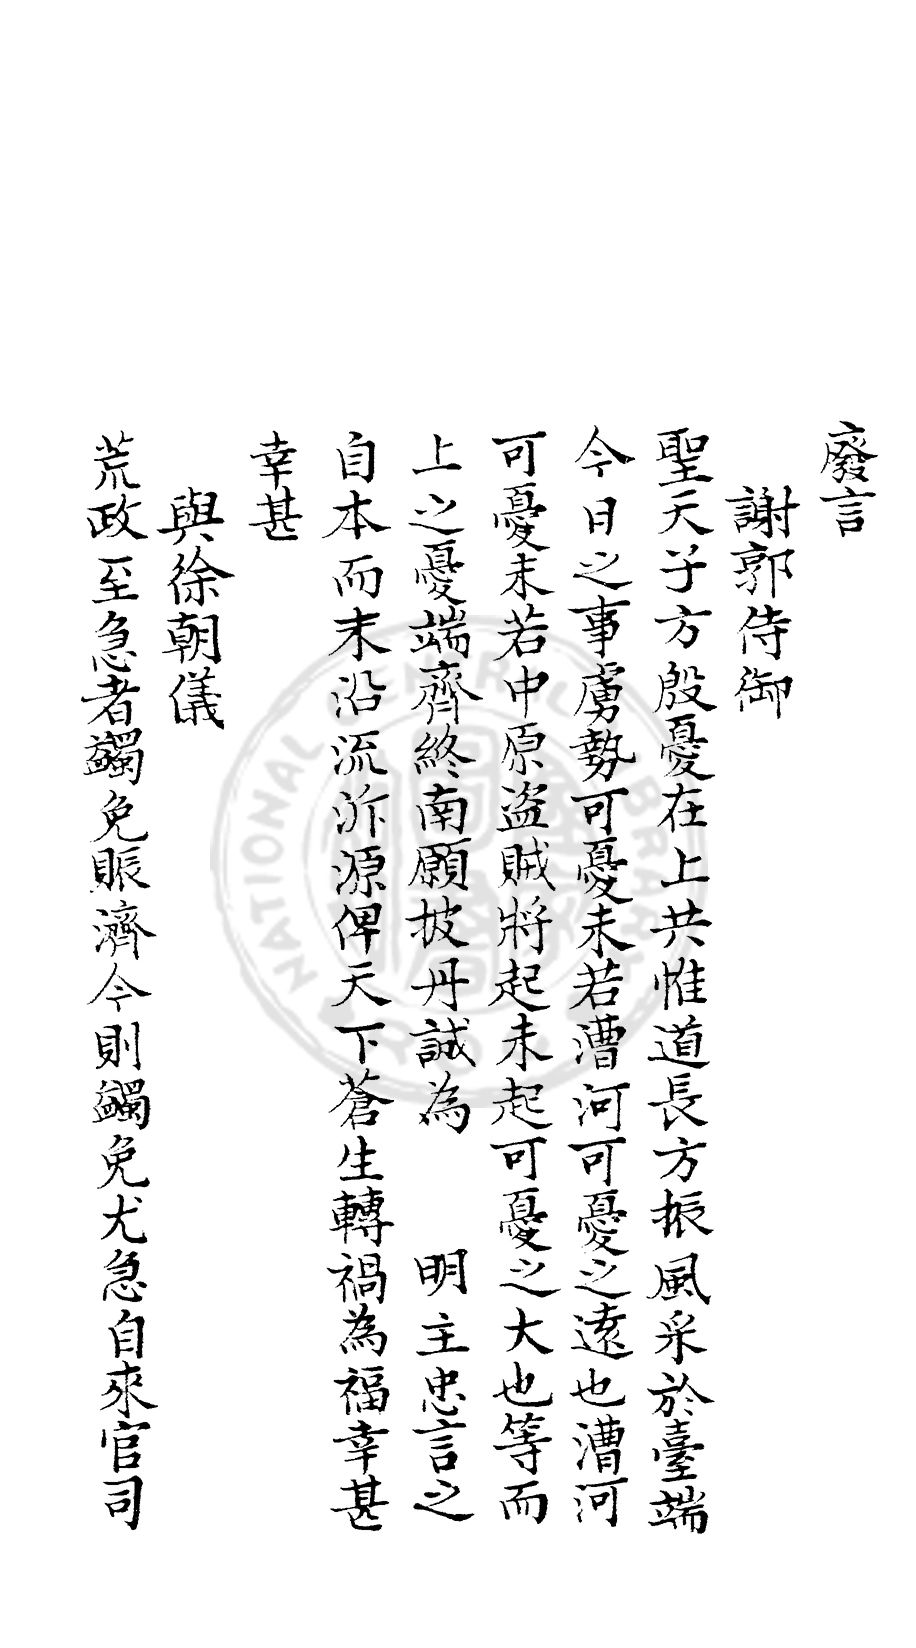 廢言
謝郭侍御
聖天子方殷憂在上共惟道長方振風采於臺端
今日之事虜勢可憂未若漕河可憂之遠也漕河
可憂未若中原盜賊將起未起可憂之大也等而
上之憂端齊終南願披丹誠為 明主忠言之
自本而末沿流泝源俾天下蒼生轉禍為福幸甚
幸甚
與徐朝儀
荒政至急者蠲免賑濟今則蠲免尤急自來官司
NATIONAL CENTRAL LIBRARY